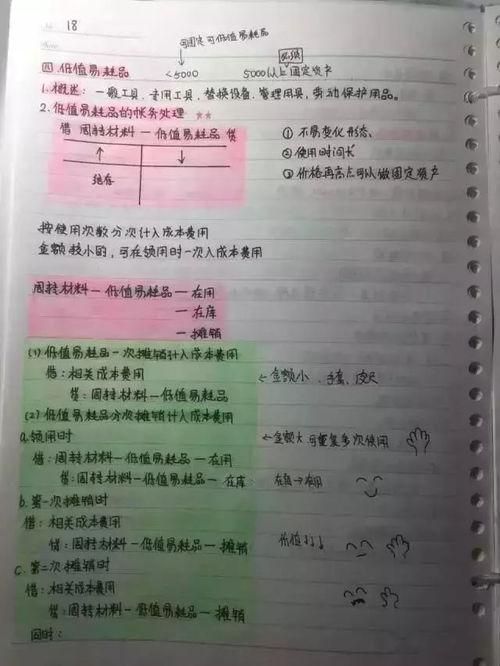 18
可固定可低值易耗品
必须
四、低值易耗品 <5000 5000以上固定资产
1.概述:一般工具、专用工具、替换设备、管理用具、劳动保护用品。
2.低值易耗品的帐务处理 ★★
借 周转材料—低值易耗品 贷 ①不易变化形态、
↑ ↓ ②使用时间长
结存 ③价格再高点可以做固定资产
按使用次数分次计入成本费用
金额较小的,可在领用时一次入成本费用
周转材料—低值易耗品—在用
—在库
—摊销
(1)低值易耗品一次摊销计入成本费用
借:相关成本费用 ←金额小、手套、皮尺
贷:周转材料—低值易耗品
(2)低值易耗品分次摊销计入成本费用
a.领用时 ←金额大可重复多次使用
借:周转材料—低值易耗品—在用
贷:周转材料—低值易耗品—在库 在库→在用
b.第一次摊销时
借:相关成本费用
贷:周转材料—低值易耗品—摊销 价值打↓
c.第二次摊销时
借:相关成本费用
贷:周转材料—低值易耗品—摊销
同时: